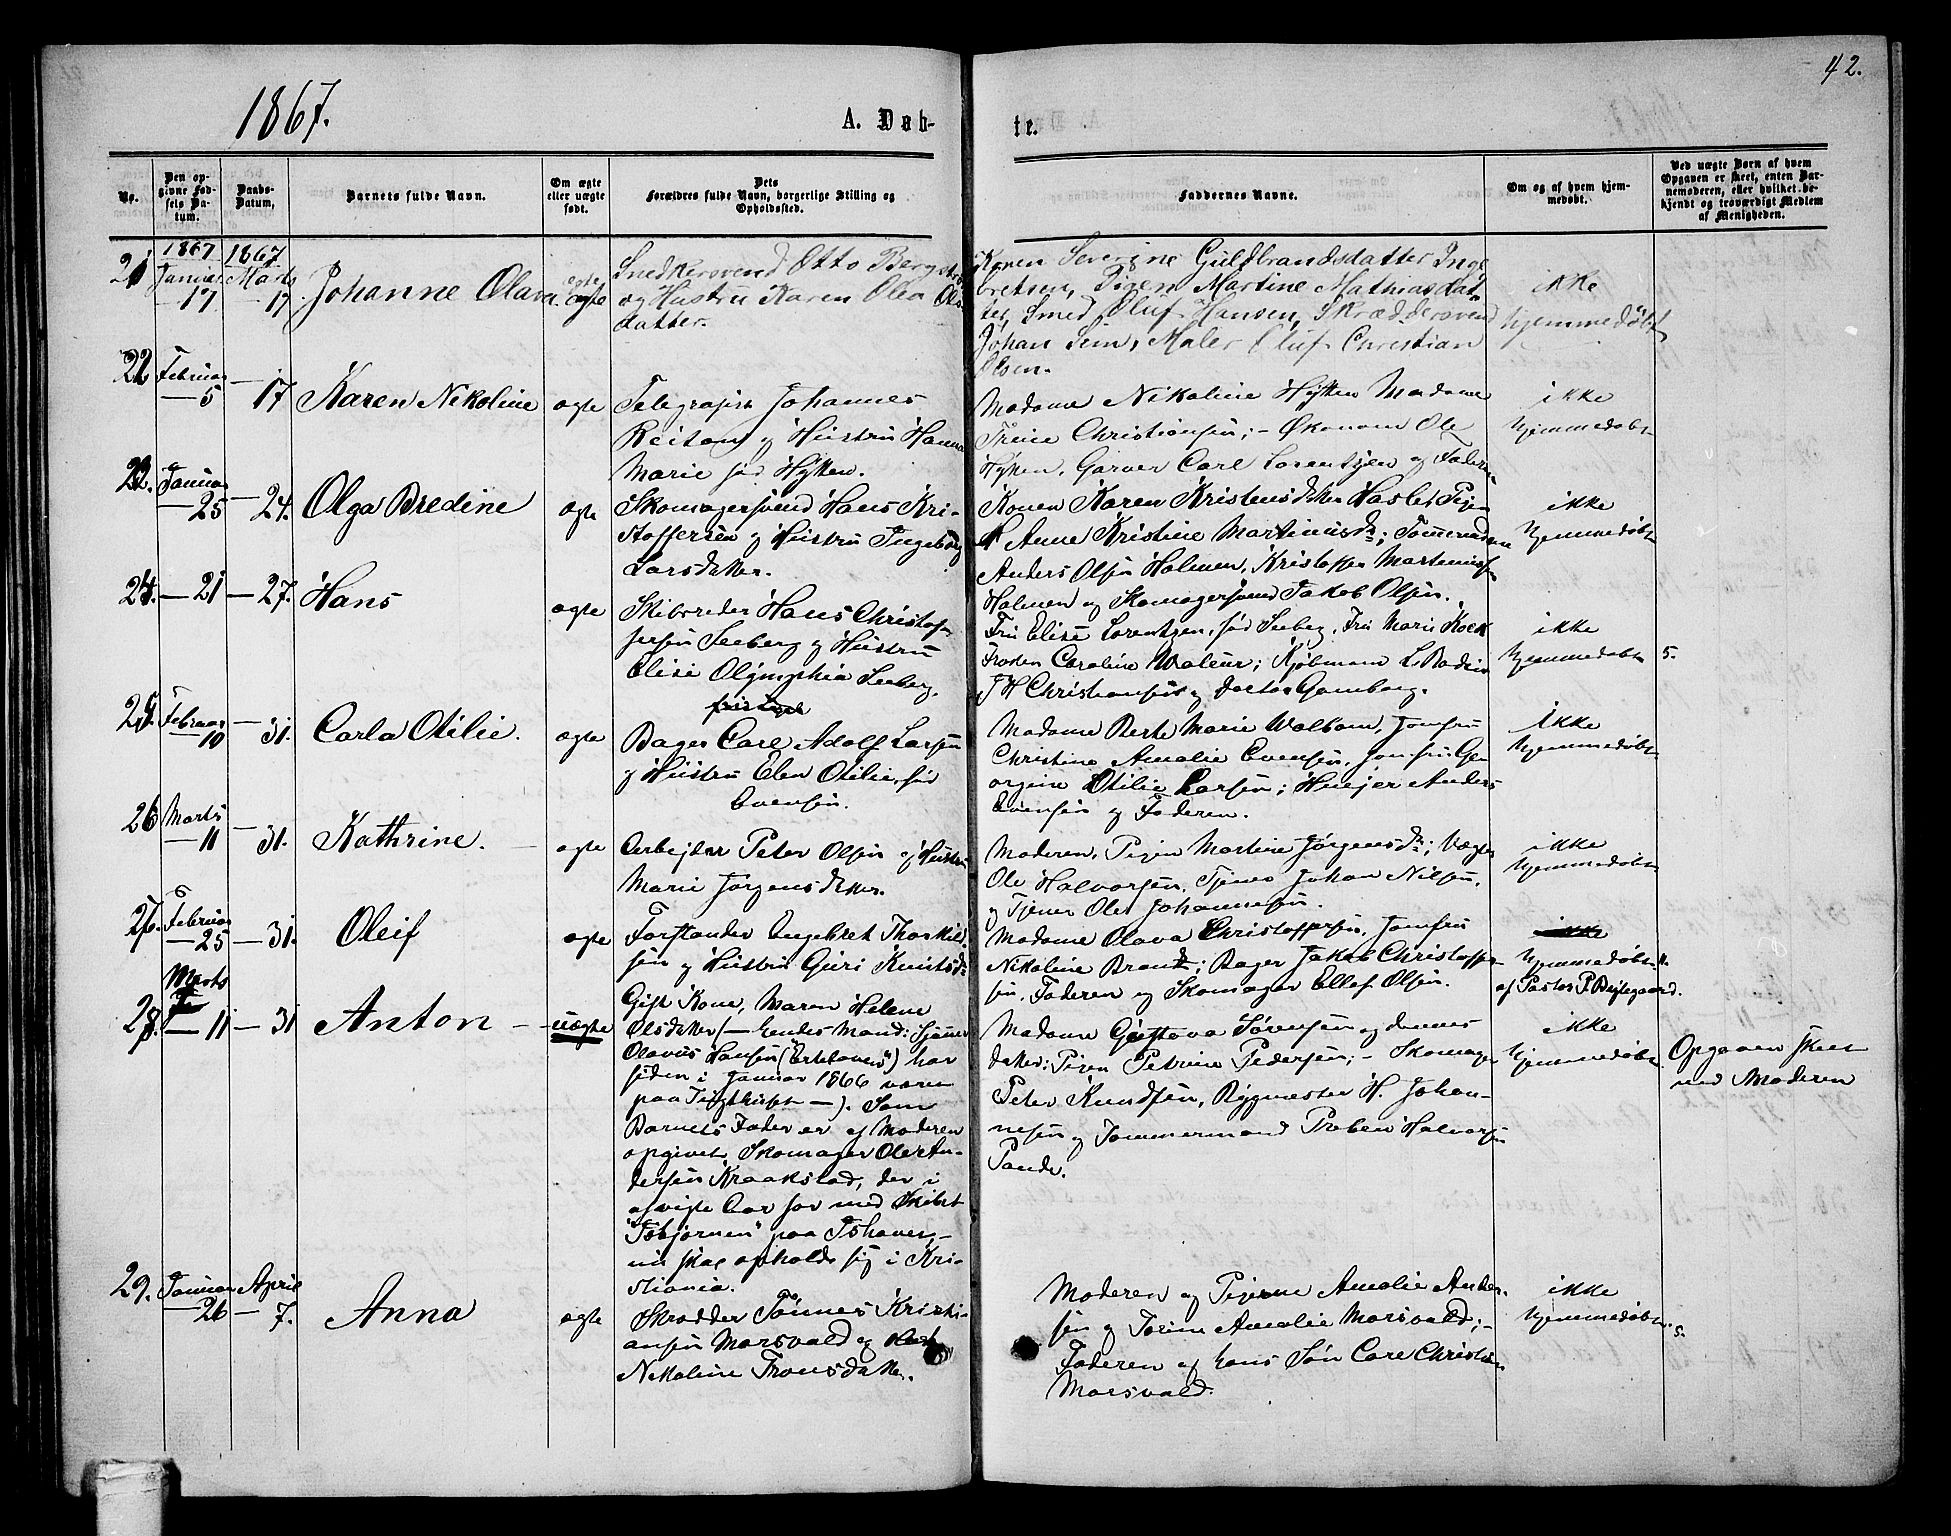 42.
1867.
A. Døb-
te.
No.
Den op-
givne Fød-
sels Da-
tum.
Daabs-
Datum,
Barnets fulde Navn.
Om ægte
eller uægte
født.
Dets
Forældres fulde Navn, borgerlige Stilling og
Opholdssted.
Faddernes Navne.
Om og af hvem hjem-
medøbt.
Ved uægte Børn af hvem
Opgaven er skeet, enten Bar-
nemoderen, eller hvilket be-
kjendt og troværdigt Medlem
af Menigheden.
21
1867
Januar
17
1867
Marts
17
Johanne Olava.
egte
ægte
Snedkersvend Otto Bergstrøm
og Hustru Karen Olea Ols-
datter.
Konen Severine Guldbrandsdatter Inge
bretsen, Pigen Martine Mathiasdat-
ter, Smed Oluf Hansen, Skræddersvend
Johan Sim, Maler Oluf Christian
Olsen.
ikke
hjemmedøbt
22
Februar
5
17
Karen Nikoline
ægte
Telegrafist Johannes
Reitan og Hustru Hanna
Marie fød Hytten.
Madame Nikoline Hytten Madame
Trine Christiansen; - Økonom Ole
Hytten, Garver Carl Lorentzen og Faderen
ikke
hjemmedøbt
23.
Januar
25
24.
Olga Bredine
ægte
Skomagersvend Hans Kri-
stoffersen og Hustru Ingeborg
Larsdatter.
Konen Karen Kristensdatter Hasler, Pigen
Anne Kristine Martinusdr; Tømmermand
Anders Olsen Holmen, Kristoffer Martinussen
Holmen og Skomagersvend Jakob Olsen.
ikke
hjemmedøbt
24.
21
27.
Hans
ægte
Skibsreder Hans Christof-
fersen Seeberg og Hustru
Elise Olymphia Seeberg.
Fru Elise Lorentzen, fød Seeberg, Fru Marie Koch
Frøken Caroline Waleur; Kjøbmand L. Bodin
J H Christiansen og Doctor Gamborg.
ikke
hjemmedøbt
5.
25.
Februar
10
31.
Carla Otilie.
ægte
Bager Carl Adolf Larsen
og Hustru Elen Otilie, fød
Evensen.
Madame Berte Marie Walbom, Jomfru
Christine Amalie Evensen, Jomfru Ge-
orgine Otilie Larsen; Anders
Evensen og Faderen.
Ikke
hjemmedøbt
26
Marts
11
31.
Kathrine.
ægte
Arbejder Peter Olsen og Hustru
Marie Jørgensdatter.
Moderen, Pigen Martine Jørgensdr; Vægter
Ole Halvorsen, Tjener Johan Nilsen,
og Tjener Ole Johannesen.
ikke
hjemmedøbt
27.
Februar
25
31.
Oleif
ægte
Forstander Engebret Thorkild-
sen og Hustru Guri Knutsdr
Madame Olava Christoffersen, Jomfru
Nikoline Brandt; Bager Jakob Christoffer-
sen, Faderen og Skomager Ellef Olsen.
ikke
hjemmedøbt
af Pastor P. Bejlegaard.
28.
Marts
11
31
Anton
uægte
Gift Kone, Maren Helene
Olsdatter (- hendes Mand: Tjener
Olavus Hansen ("Ertelaven") har
siden i Januar 1866 været
paa Tugthuset -). Som
Barnets Fader er af Moderen
opgivet Skomager Ole An-
dersen Kraakstad, der i
afvigte Aar for med Skibet
"Isbjørnen" paa Ishavet,-
nu skal opholde sig i Kri-
stiania.
Madame Gustava Sørensen og dennes
datter; Pigen Petrine Pedersen; - Skomager
Peter Knudsen, Bygmester H. Johan-
nesen og Tømmermand Preben Halvorsen
Pande.
ikke
hjemmedøbt
Opgaven skeet
ved Moderen
29.
Januar
26
April
7.
Anna
ægte
Skrædder Tønnes Kristi-
ansen Morsvald og
Nikoline Tronsdatter.
Moderen og Pigerne Amalie Ander-
sen og Torine Amalie Morsvald; -
Faderen og hans Søn Carl Christian
Morsvald.
ikke
hjemmedøbt.
5.